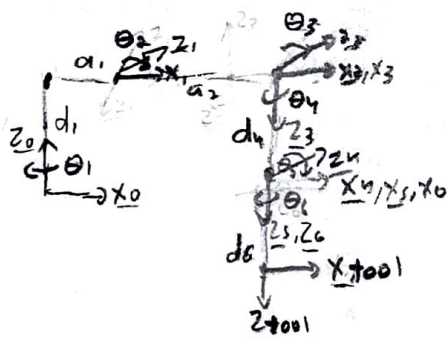 θ2 Z1
a1 X1
a2
θ3 Z2
X2, X3
d1
Z0
θ1
X0
θ4
d4 Z3
θ5 Z4
X4, X5, X6
θ6
Z5, Z6
d6
X tool
Z tool